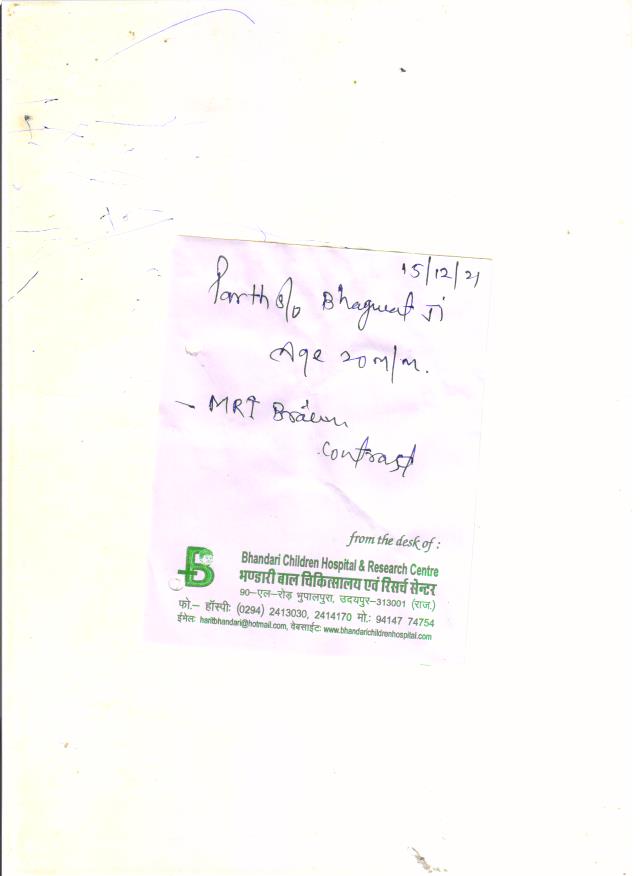 15/12/21
Parth S/o Bhagwat Ji
Age 20 m/m.
- MRI Brain
contrast
from the desk of :
B
Bhandari Children Hospital & Research Centre
भण्डारी बाल चिकित्सालय एवं रिसर्च सेन्टर
90-एल-रोड़ भुपालपुरा, उदयपुर-313001 (राज.)
फो.- हॉस्पी: (0294) 2413030, 2414170 मो.: 94147 74754
ईमेल: haritbhandari@hotmail.com, वेबसाईट: www.bhandarichildrenhospital.com